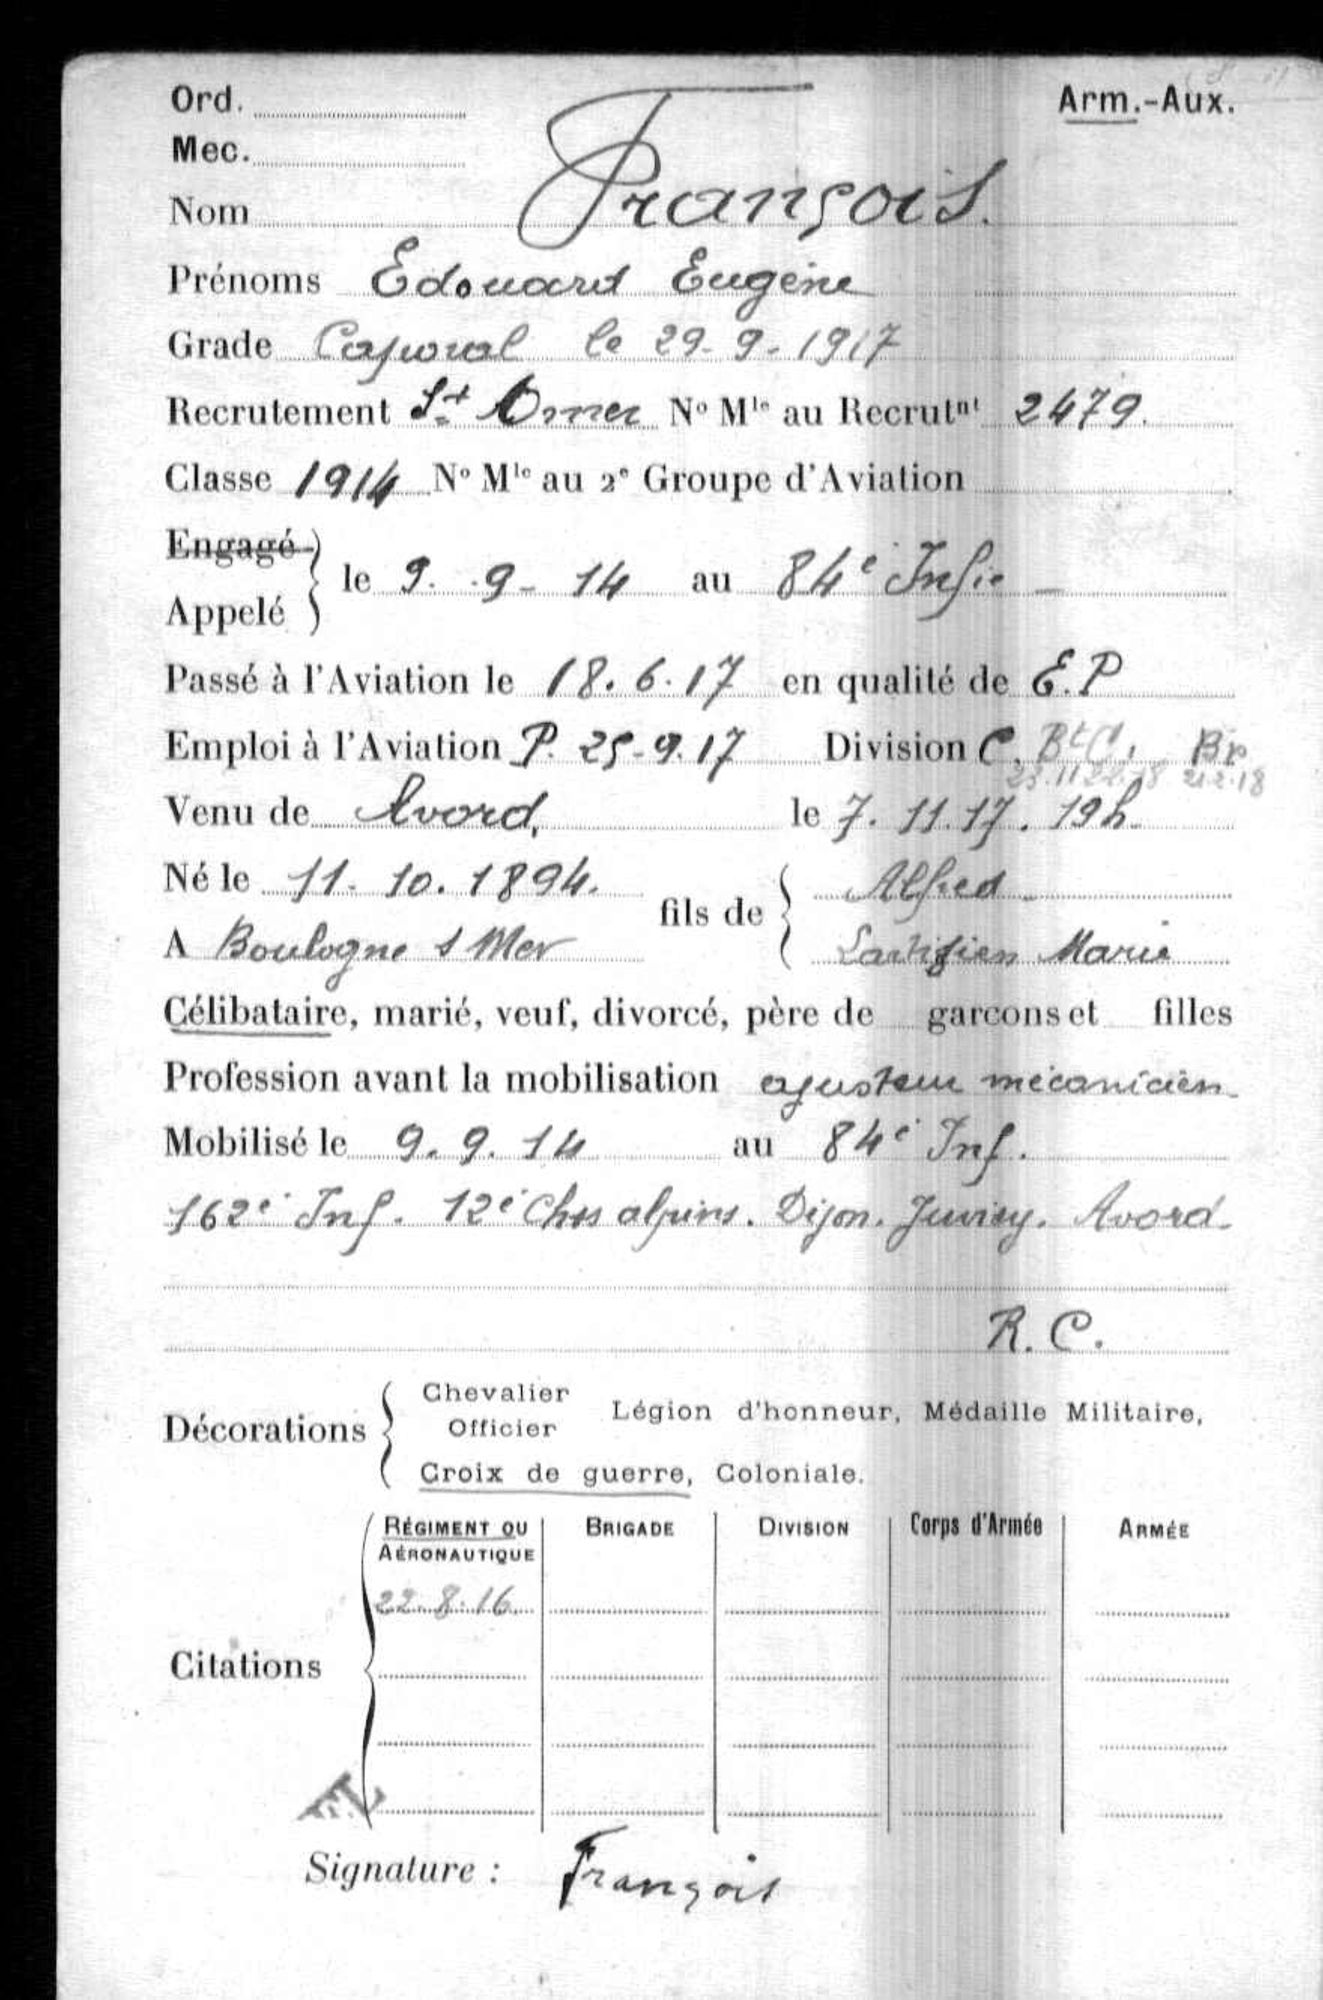 Ord. Arm.-Aux.
Mec.
Nom François.
Prénoms Edouard Eugène
Grade Caporal le 29-9-1917
Recrutement St Omer No Mle au Recrutnt 2479.
Classe 1914 No Mle au 2e Groupe d'Aviation
Engagé
le 9.-9-14 au 84e Infie
Appelé
Passé à l'Aviation le 18.6.17 en qualité de E.P
Emploi à l'Aviation P. 25-9.17 Division C, Br
23.11 21.2.18
Venu de Avord, le 7.11.17. 19h.
Né le 11.10.1894. Alfred
fils de
A Boulogne s Mer Marie
Célibataire, marié, veuf, divorcé, père de garçons et filles
Profession avant la mobilisation ajusteur mécanicien
Mobilisé le 9.9.14 au 84e Inf.
162e Inf. 12e Chrs alpins. Dijon. Juvisy. Avord.
R.C.
Chevalier
Légion d'honneur, Médaille Militaire,
Décorations Officier
Croix de guerre, Coloniale.
RÉGIMENT OU BRIGADE DIVISION Corps d'Armée ARMÉE
AÉRONAUTIQUE
22.8.16
Citations
Signature : François